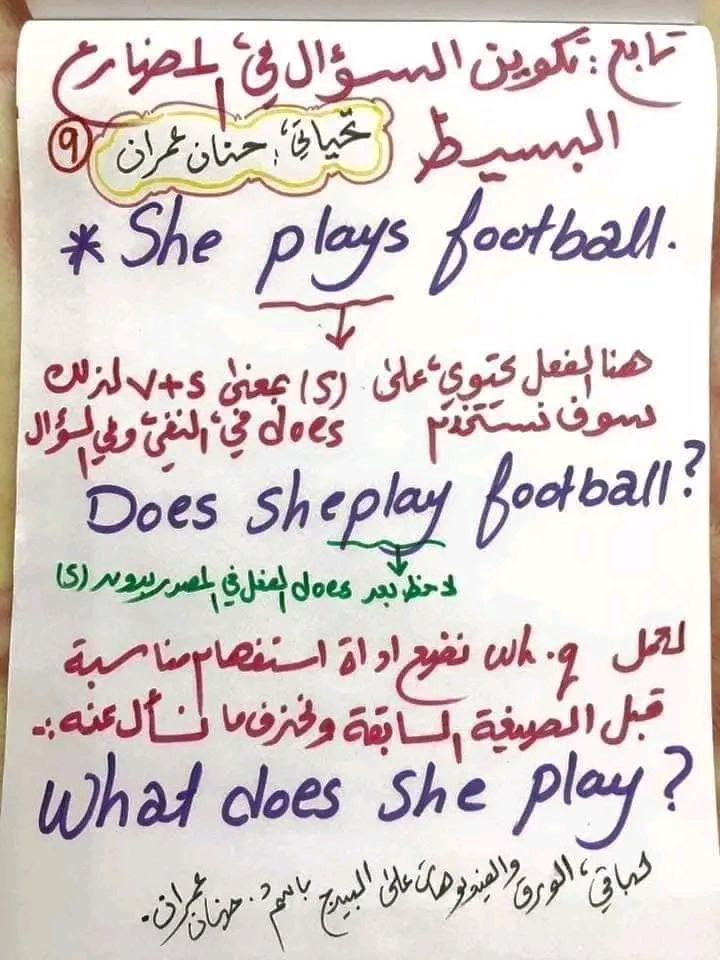 تابع: تكوين السؤال في المضارع
البسيط
تحياتي، حنان عمران
٩
* She plays football.
هنا الفعل يحتوي على (s) بمعنى v+s لذلك
سوف نستخدم does في النفي وفي السؤال
Does she play football?
لاحظ بعد does الفعل في المصدر بدون (s)
لعمل wh.q نضع اداة استفهام مناسبة
قبل الصيغة السابقة ونحذف ما نسأل عنه:-
What does she play?
لباقي، الورق والفيديوهات على البيدج باسم: حنان عمران.